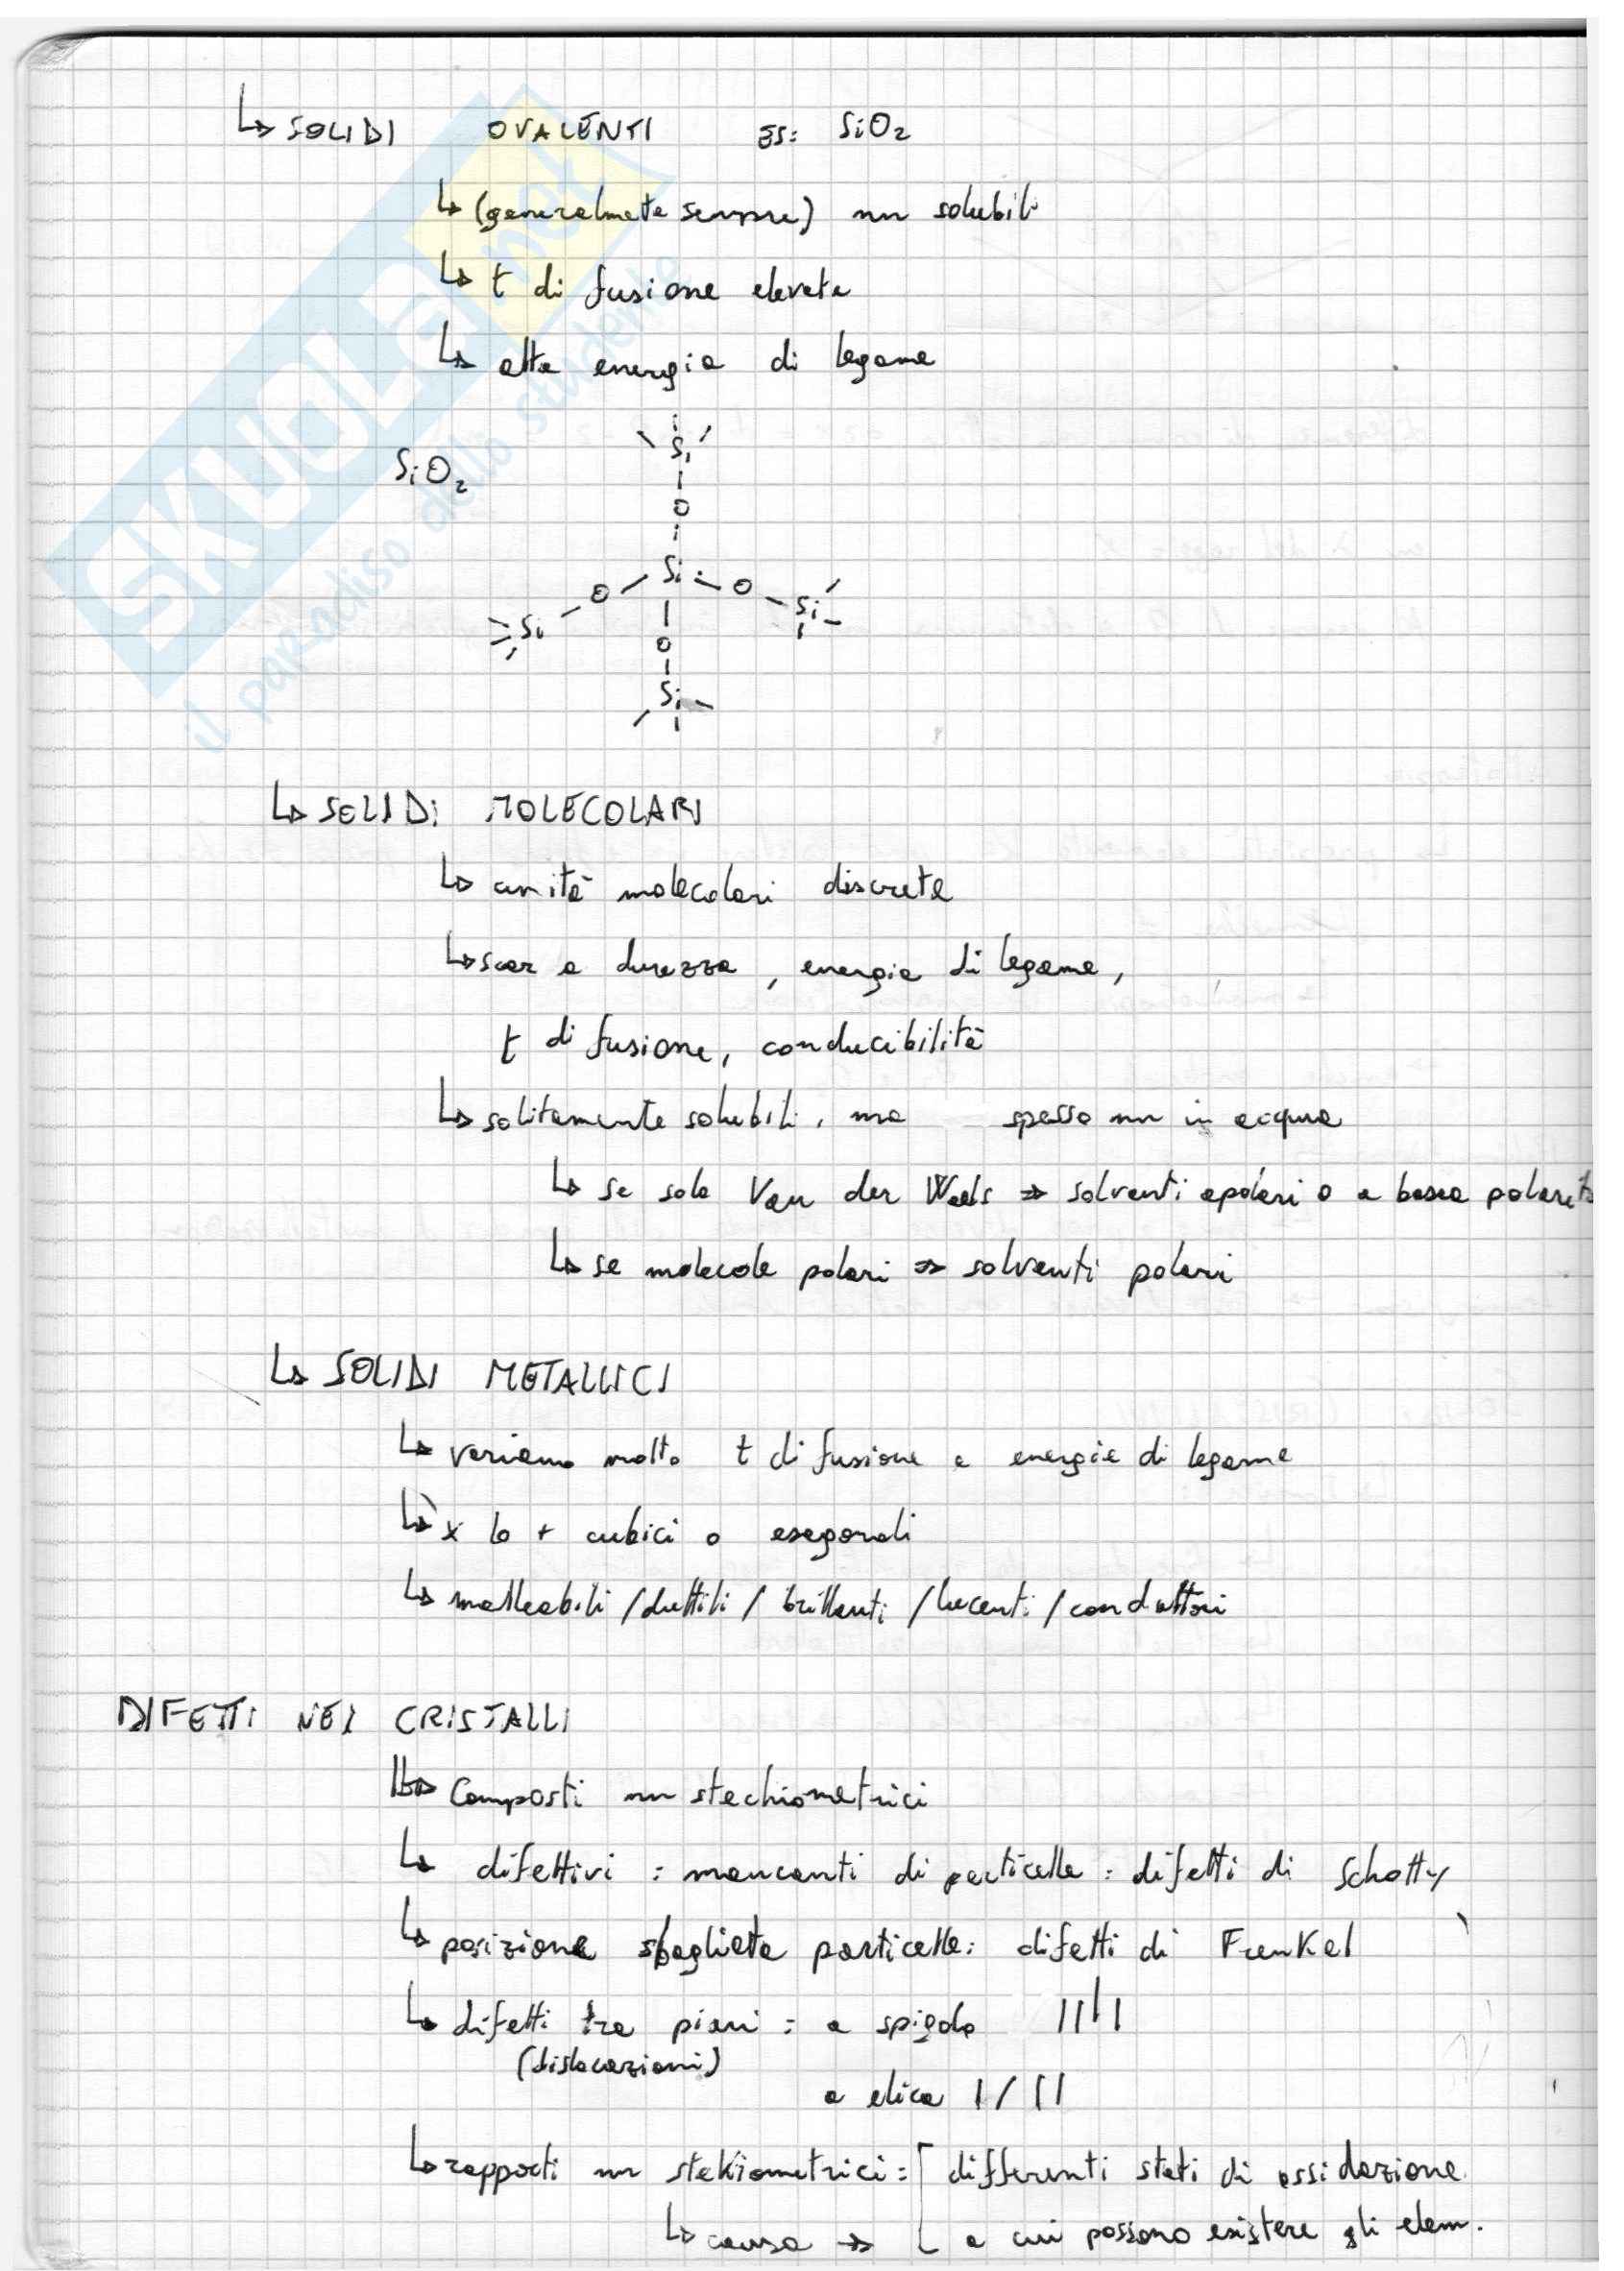 ↳ SOLIDI OVALENTI ES: SiO2
↳ (generalmete sempre) nn solubili
↳ t di fusione elevata
↳ alta energia di legame
SiO2
Si
O
Si O O
Si Si
O
Si
↳ SOLIDI MOLECOLARI
↳ unità molecolari discrete
↳ scar a durezza, energia di legame,
t di fusione, conducibilità
↳ solitamente solubili, ma spesso nn in acqua
↳ se solo Van der Waals ⇒ solventi apolari o a bassa polarità
↳ se molecole polari ⇒ solventi polari
↳ SOLIDI METALLICI
↳ variano molto t di fusione e energie di legame
↳ x lo + cubici o esagonali
↳ malleabili / duttili / brillanti / lucenti / conduttori
DIFETTI NEI CRISTALLI
↳ Composti nn stechiometrici
↳ difettivi : mancanti di particelle : difetti di Schotty
↳ posizione sbagliata particelle: difetti di Frenkel
↳ difetti tra piani : a spigolo
(dislocazioni)
a elica
↳ rapporti nn stekiometrici = differenti stati di ossidazione
↳ causa ⇒ a cui possono esistere gli elem.
SKUOLA.net
il paradiso dello studente